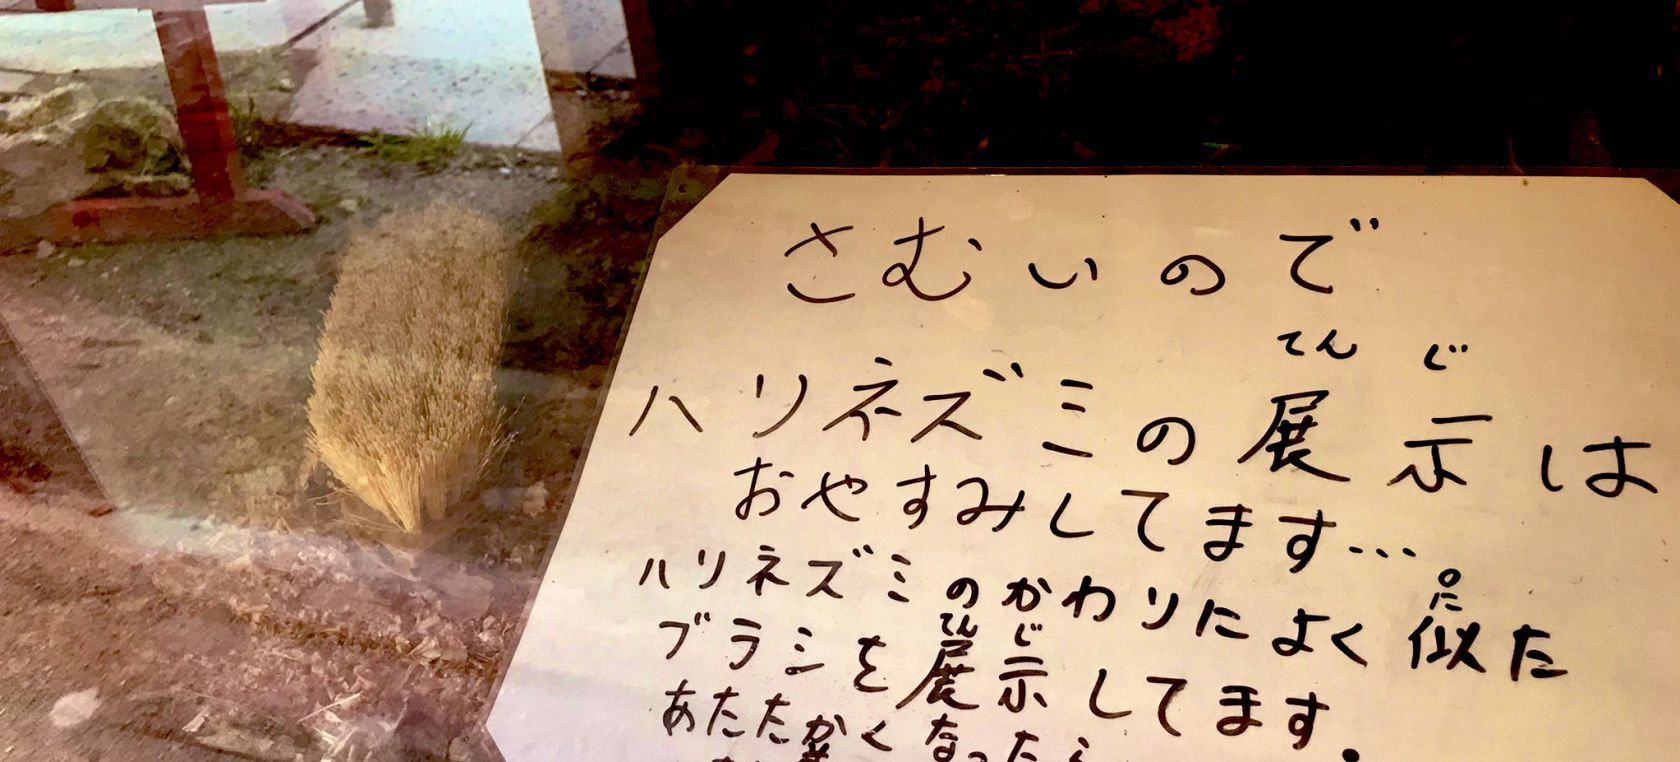 さむいので
てんじ
ハリネズミの展示は
おやすみしてます…
ハリネズミのかわりによく似た
に
ブラシを展示してます。
てんじ
あたたかくなったら